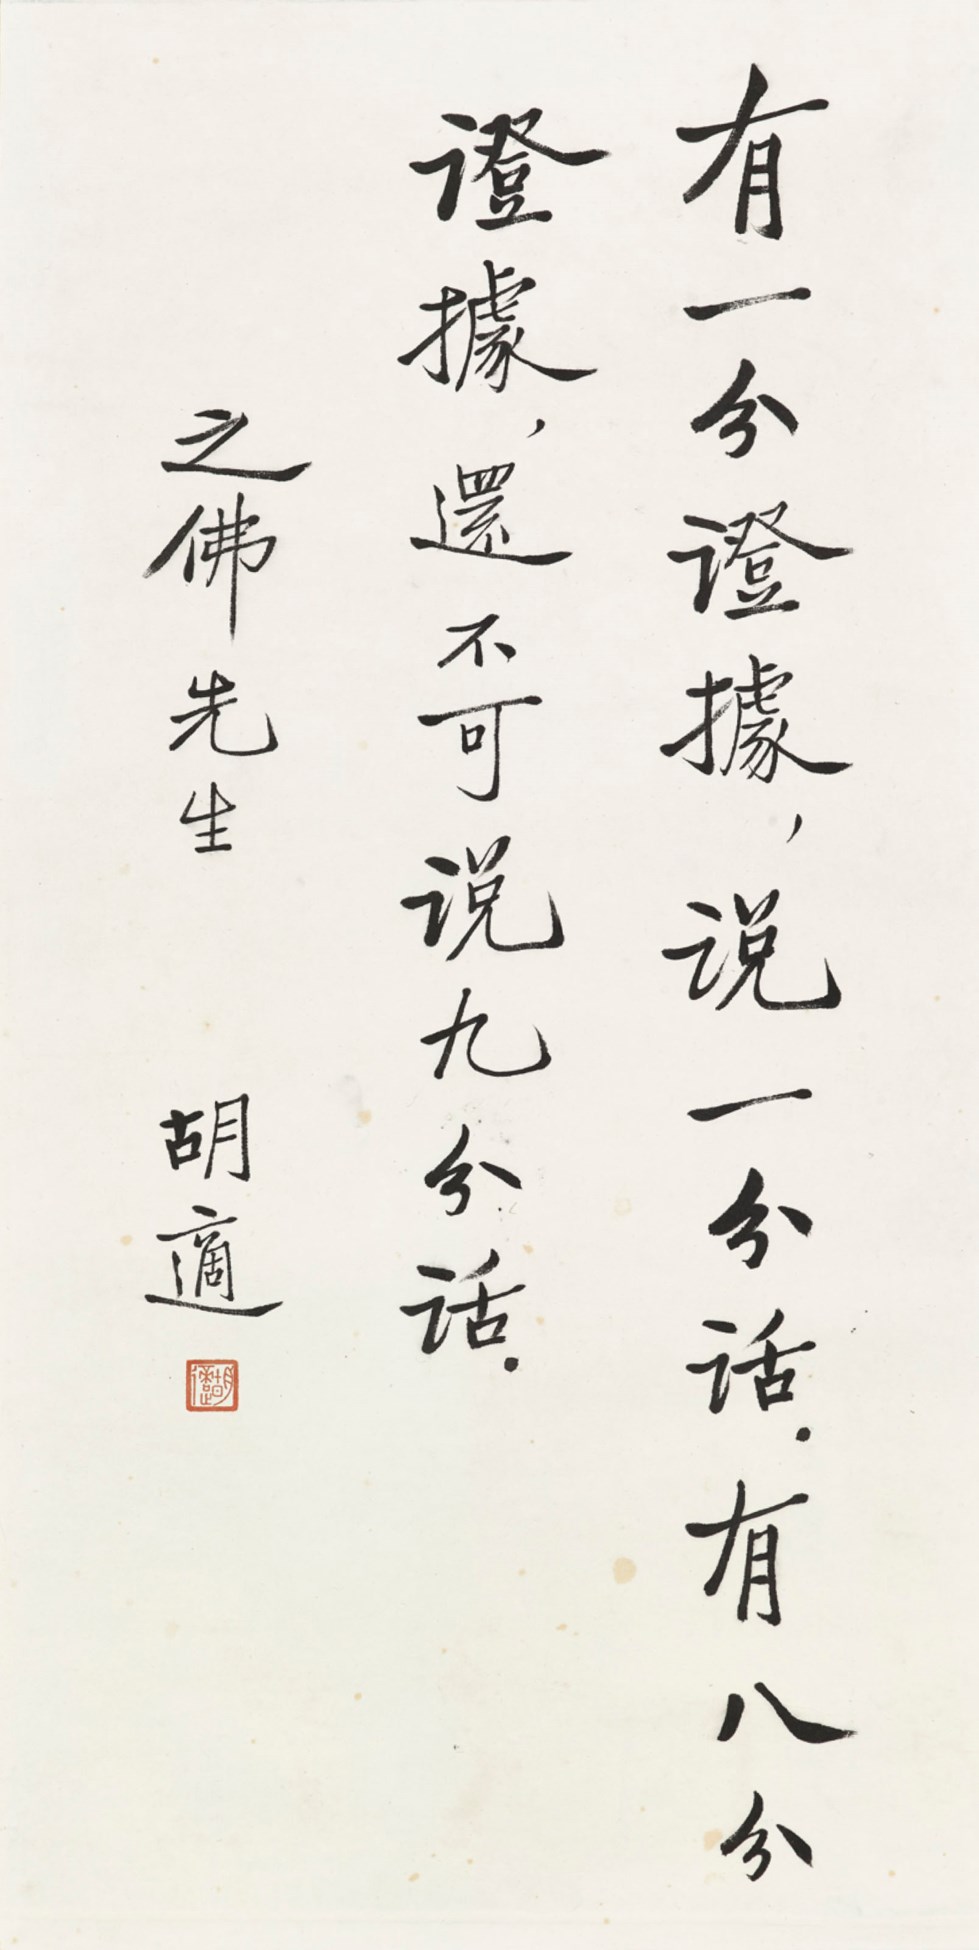 有一分證據，说一分话．有八分
證據，還不可说九分话．
之佛先生 胡適
胡適